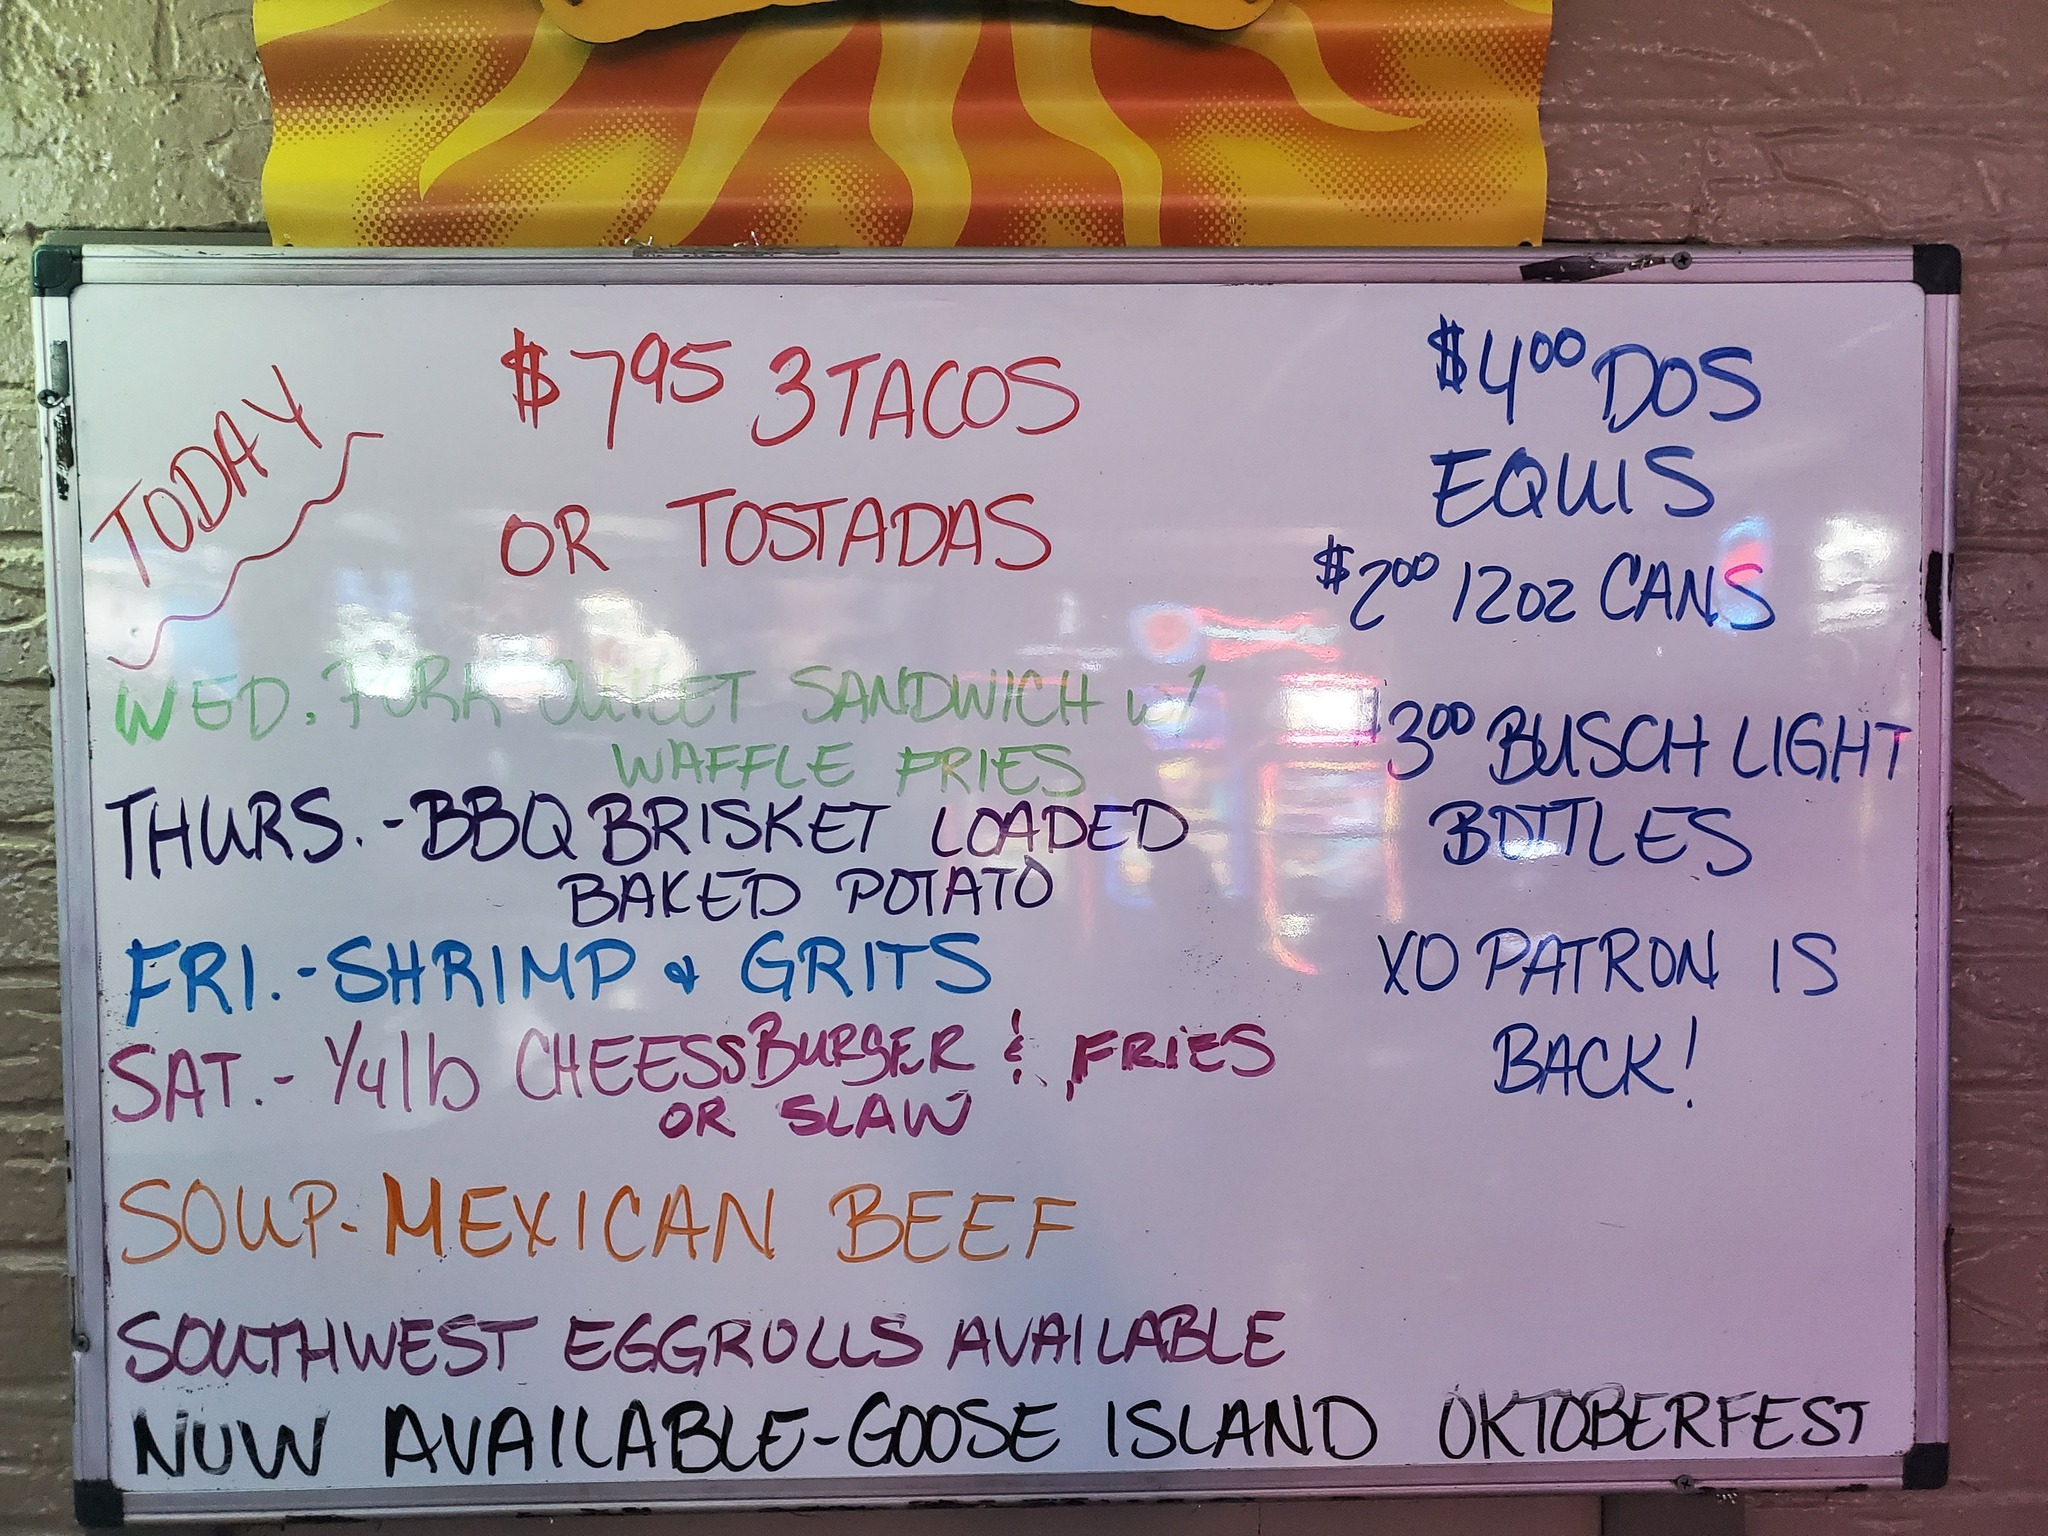 TODAY
$7.95 3 TACOS
OR TOSTADAS
WED. PORK CUTLET SANDWICH w/
WAFFLE FRIES
THURS. - BBQ BRISKET LOADED
BAKED POTATO
FRI. - SHRIMP & GRITS
SAT. - 1/4 lb CHEESSBURGER & FRIES
OR SLAW
SOUP - MEXICAN BEEF
SOUTHWEST EGGROLLS AVAILABLE
NOW AVAILABLE - GOOSE ISLAND OKTOBERFEST
$4.00 DOS
EQUIS
$2.00 12oz CANS
$3.00 BUSCH LIGHT
BOTTLES
XO PATRON IS
BACK!